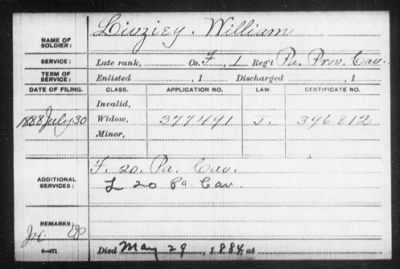 NAME OF SOLDIER: Livziey. William
SERVICE: Late rank, Co. F, L Reg't Pa. Prov. Cav.
TERM OF SERVICE: Enlisted , 1 Discharged , 1
DATE OF FILING. CLASS. APPLICATION NO. LAW. CERTIFICATE NO.
Invalid,
1888 July 30 Widow, 377491 396812
Minor,
ADDITIONAL SERVICES: F. 20. Pa. Cav.
L 20 Pa Cav.
REMARKS:
Died May 29, 1884, at